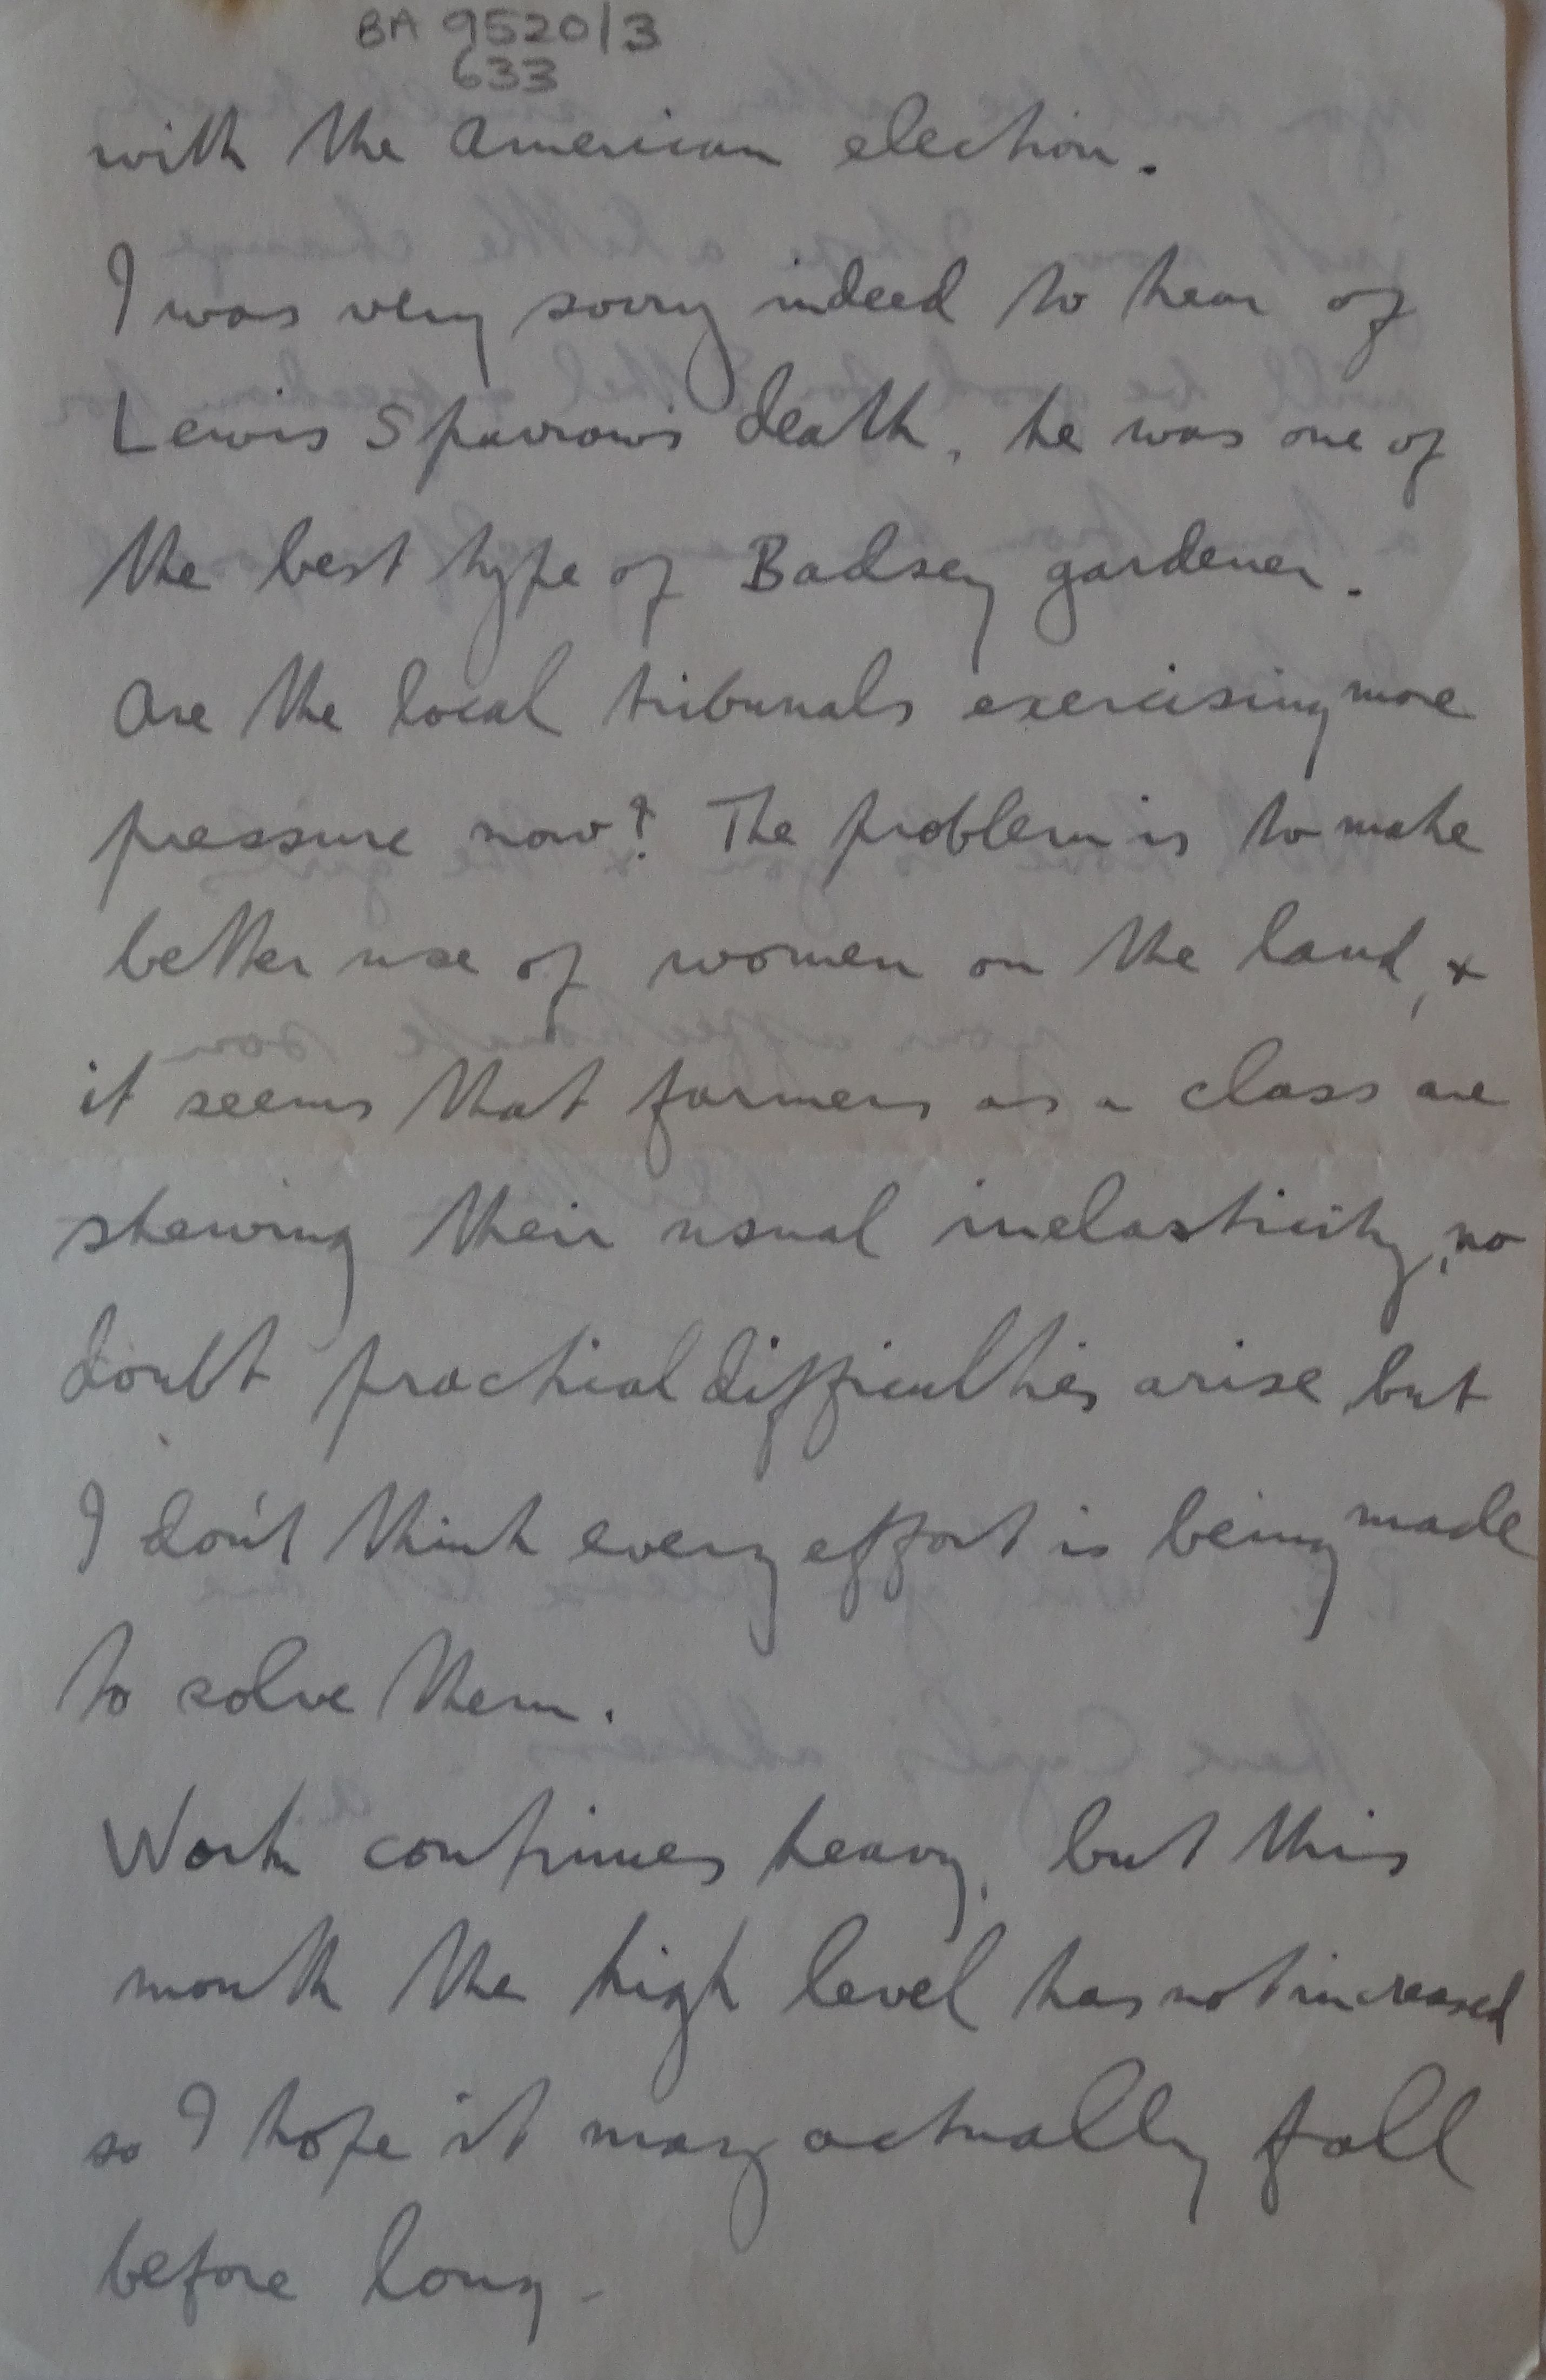 BA 9520/3
633
with the American election.
I was very sorry indeed to hear of
Lewis Sparrows death, he was one of
the best type of Badsey gardener.
Are the local tribunals exercising more
pressure now? The problem is to make
better use of women on the land, &
it seems that farmers as a class are
shewing their usual inelasticity, no
doubt practical difficulties arise but
I don't think every effort is being made
to solve them.
Work continues heavy, but this
month the high level has not increased
so I hope it may actually fall
before long -